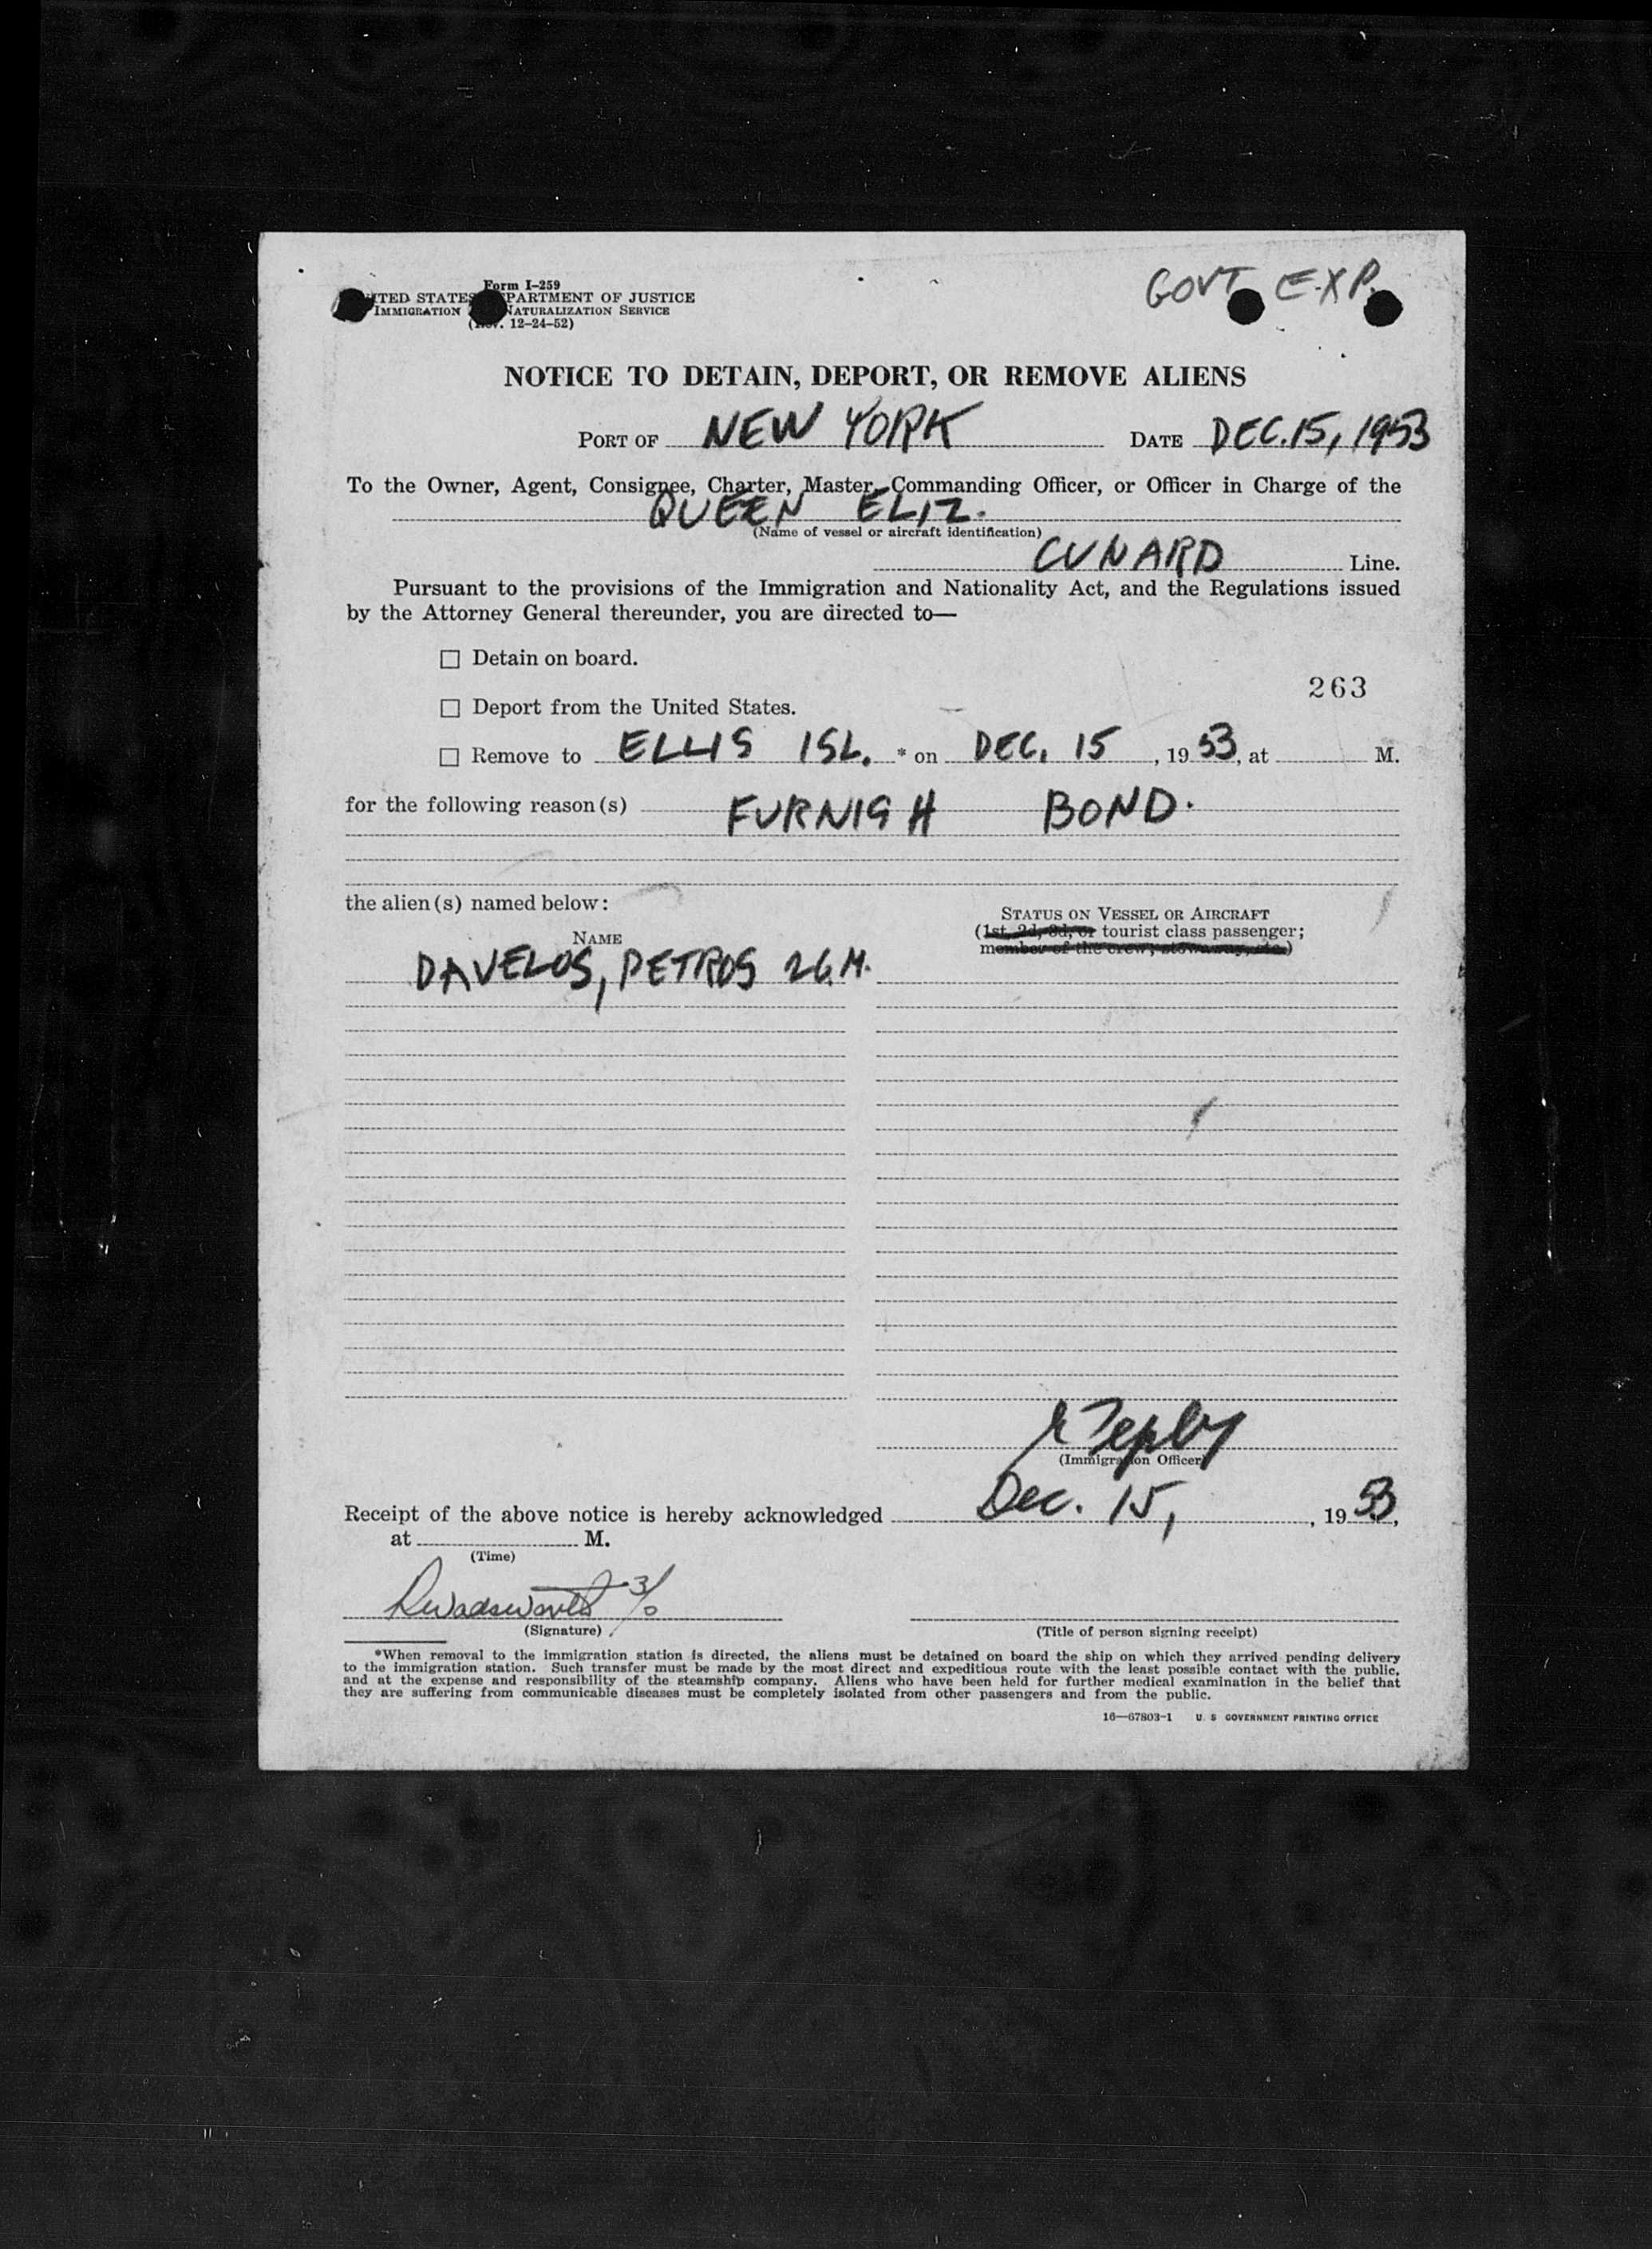 GOVT EXP.
Form I-259
UNITED STATES DEPARTMENT OF JUSTICE
IMMIGRATION NATURALIZATION SERVICE
(Rev. 12-24-52)
NOTICE TO DETAIN, DEPORT, OR REMOVE ALIENS
PORT OF NEW YORK DATE DEC. 15, 1953
To the Owner, Agent, Consignee, Charter, Master, Commanding Officer, or Officer in Charge of the
QUEEN ELIZ.
(Name of vessel or aircraft identification)
CUNARD Line.
Pursuant to the provisions of the Immigration and Nationality Act, and the Regulations issued
by the Attorney General thereunder, you are directed to—
☐ Detain on board.
263
☐ Deport from the United States.
☐ Remove to ELLIS ISL. * on DEC. 15, 1953, at M.
for the following reason(s) FURNISH BOND.
the alien(s) named below:
STATUS ON VESSEL OR AIRCRAFT
(1st, 2d, 3d, or tourist class passenger;
member of the crew; stowaway, etc.)
NAME
DAVELOS, PETROS 26.M.
(Immigration Officer)
Receipt of the above notice is hereby acknowledged Dec. 15, , 1953,
at M.
(Time)
RWadsworth 3/0
(Signature) (Title of person signing receipt)
*When removal to the immigration station is directed, the aliens must be detained on board the ship on which they arrived pending delivery
to the immigration station. Such transfer must be made by the most direct and expeditious route with the least possible contact with the public,
and at the expense and responsibility of the steamship company. Aliens who have been held for further medical examination in the belief that
they are suffering from communicable diseases must be completely isolated from other passengers and from the public.
16—67803-1 U. S GOVERNMENT PRINTING OFFICE